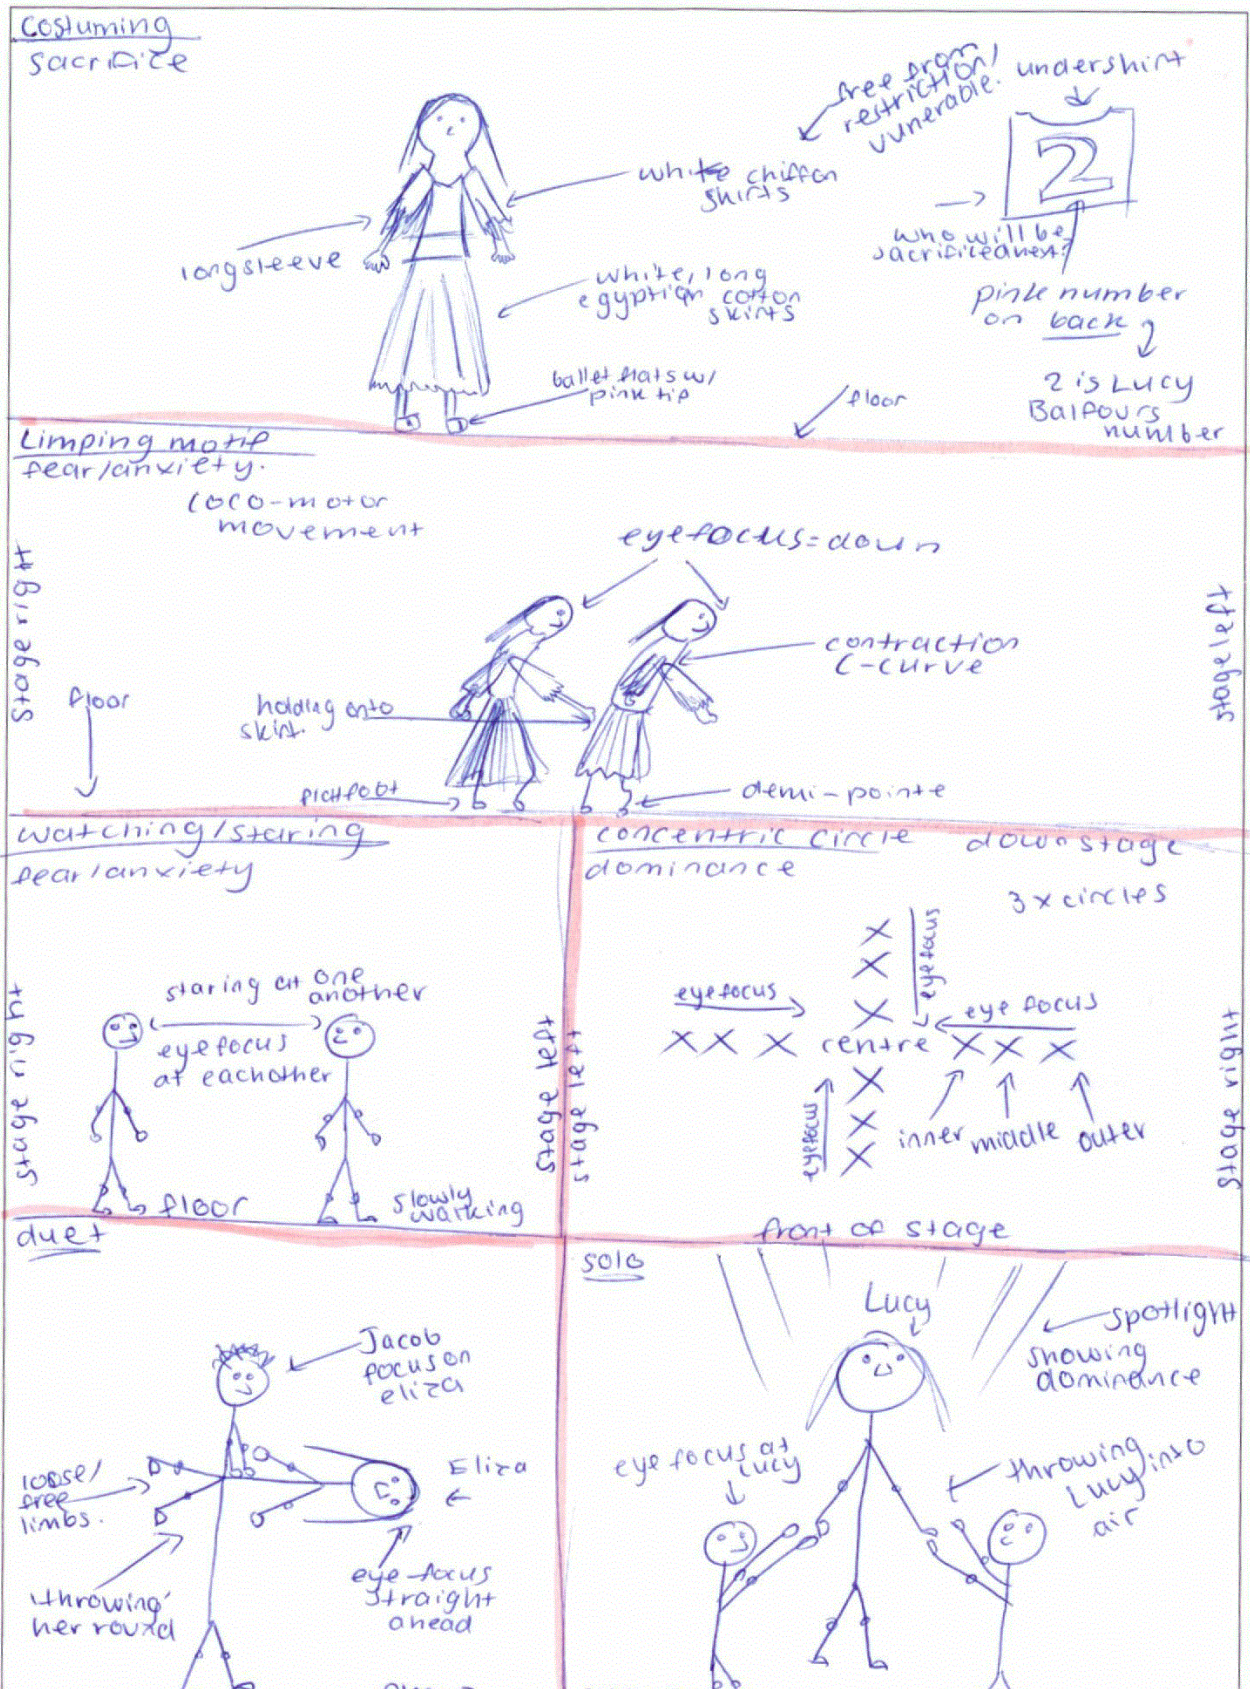 Costuming
sacrifice
free from
restriction/
vunerable.
undershirt
2
white chiffon
shirts
longsleeve
who will be
sacrificed next?
white, long
egyptian cotton
skirts
pink number
on back
ballet flats w/
pink tip
2 is Lucy
Balfours
number
floor
Limping motif
fear/anxiety.
loco-motor
movement
eyefocus=down
stage right
stage left
contraction
C-curve
floor
holding onto
skirt.
flatfoot
demi-pointe
watching/staring
fear/anxiety
staring at one
another
eyefocus
at eachother
stage right
stage left
floor
slowly
walking
concentric circle
dominance
downstage
3 x circles
X
X
X
eyefocus
eyefocus
eye focus
X X X centre X X X
X
X
X
eyefocus
inner middle outer
stage left
stage right
front of stage
duet
Jacob
focus on
eliza
loose/
free
limbs.
Eliza
'throwing'
her round
eye-focus
straight
ahead
solo
Lucy
spotlight
showing
dominance
eye focus at
Lucy
throwing
Lucy into
air